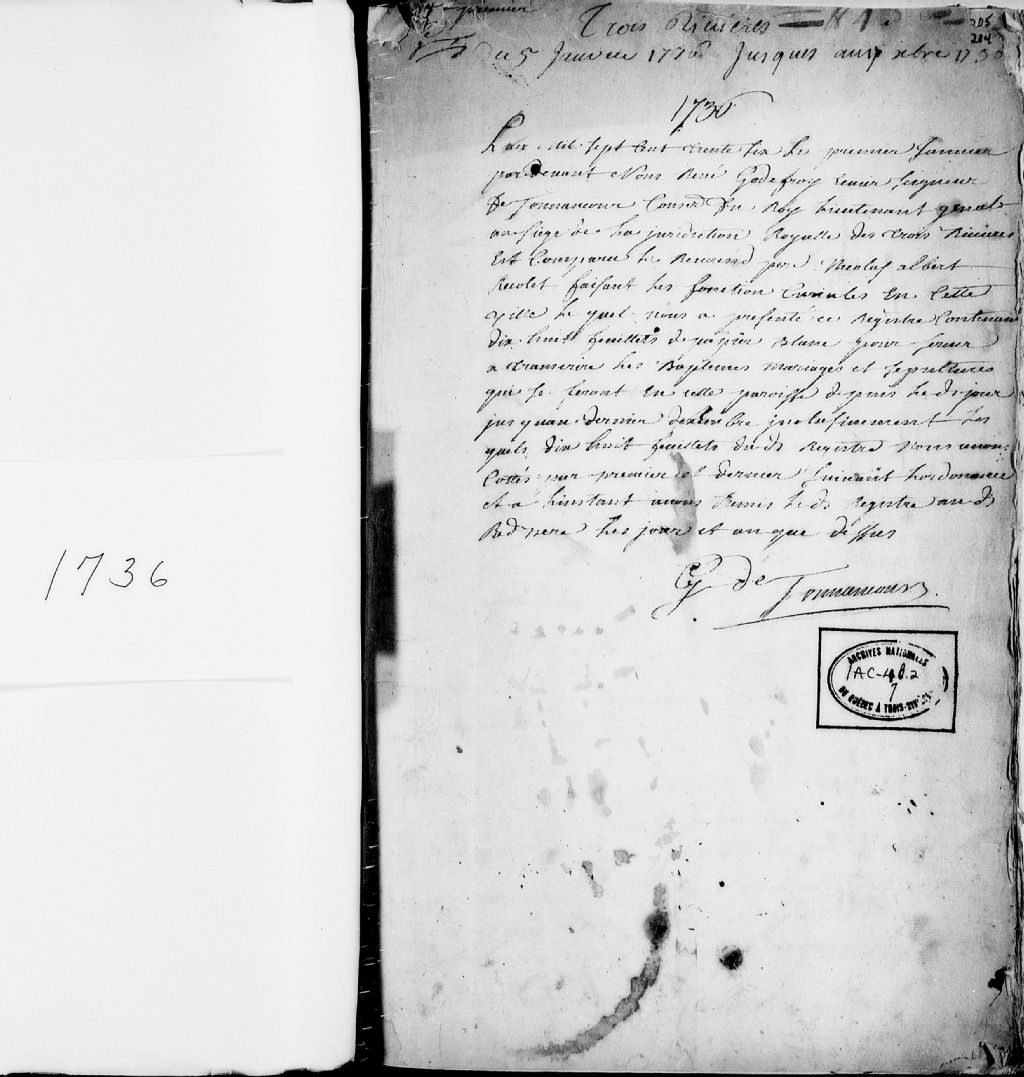 premier
Trois Rivieres
205
204
Du 5 Janvier 1736 Jusques au xbre 1736
1736
1736
L'an Mil Sept Cent trente Six Le premier Janvier
pardevant Nous René Godefroy Ecuier Seigneur
De Tonnancour Conser Du Roy Lieutenant genal
au Siege de La juridiction Royalle des trois Rivieres
Est Comparu Le Reverend pere Nicolas albert
Recolet faisant Les fonction Curiales En Cette
ville Le quel nous a presenté ce Registre Contenan
dix huit feuillets de papier Blanc pour servir
a transcrire Les Baptemes mariages et sepultures
qui se feront En cette paroisse depuis Le dt jour
jusquau dernier decembre inclusivement Les
quels dix huit feuillets du dt Registre Nous avons
Cottés par premier et dernier suivant Lordonnance
et a Linstant avons Remis Le dt Registre au dt
Red pere Les jour et an que dessus
G de Tonnancour
ARCHIVES NATIONALES
AC-48.2
7
DU QUÉBEC À TROIS-RIVIÈRES